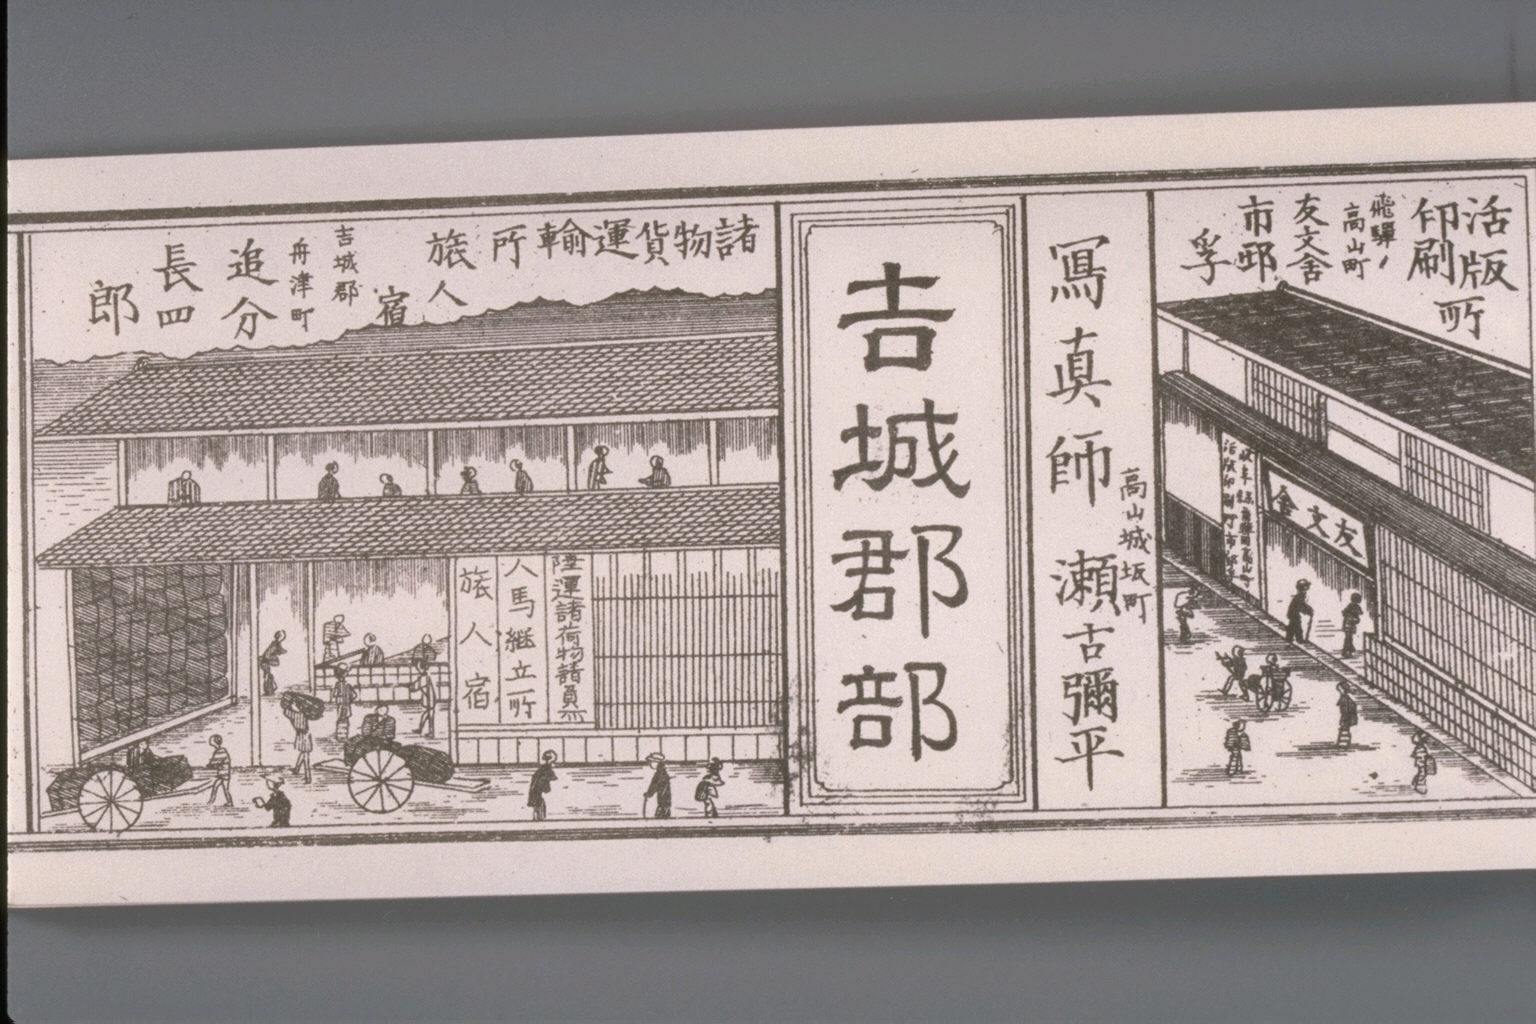 活版
印刷
所
飛驒ノ
高山町
友文舎
市邨
孚
友文舎
寫真師
高山城坂町
瀬古彌平
吉城郡部
諸物貨運輸所
旅人
宿
吉城郡
舟津町
追分
長四
郎
陸運諸荷物諸員
人馬継立所
旅人宿